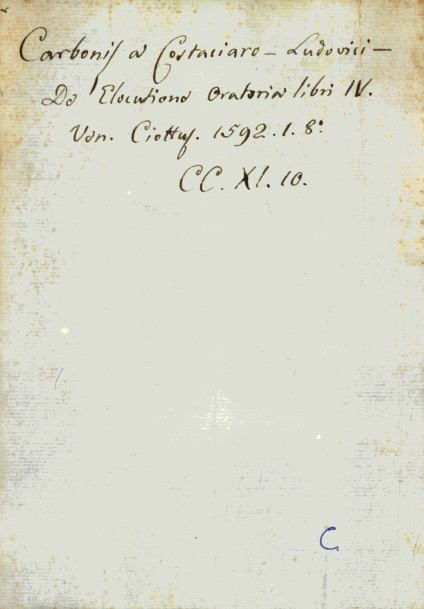 Carbonis a Costaciaro – Ludovici –
De Elocutione Oratoria libri IV.
Ven. Ciottus. 1592. 1. 8°
CC. XI. 10.
C